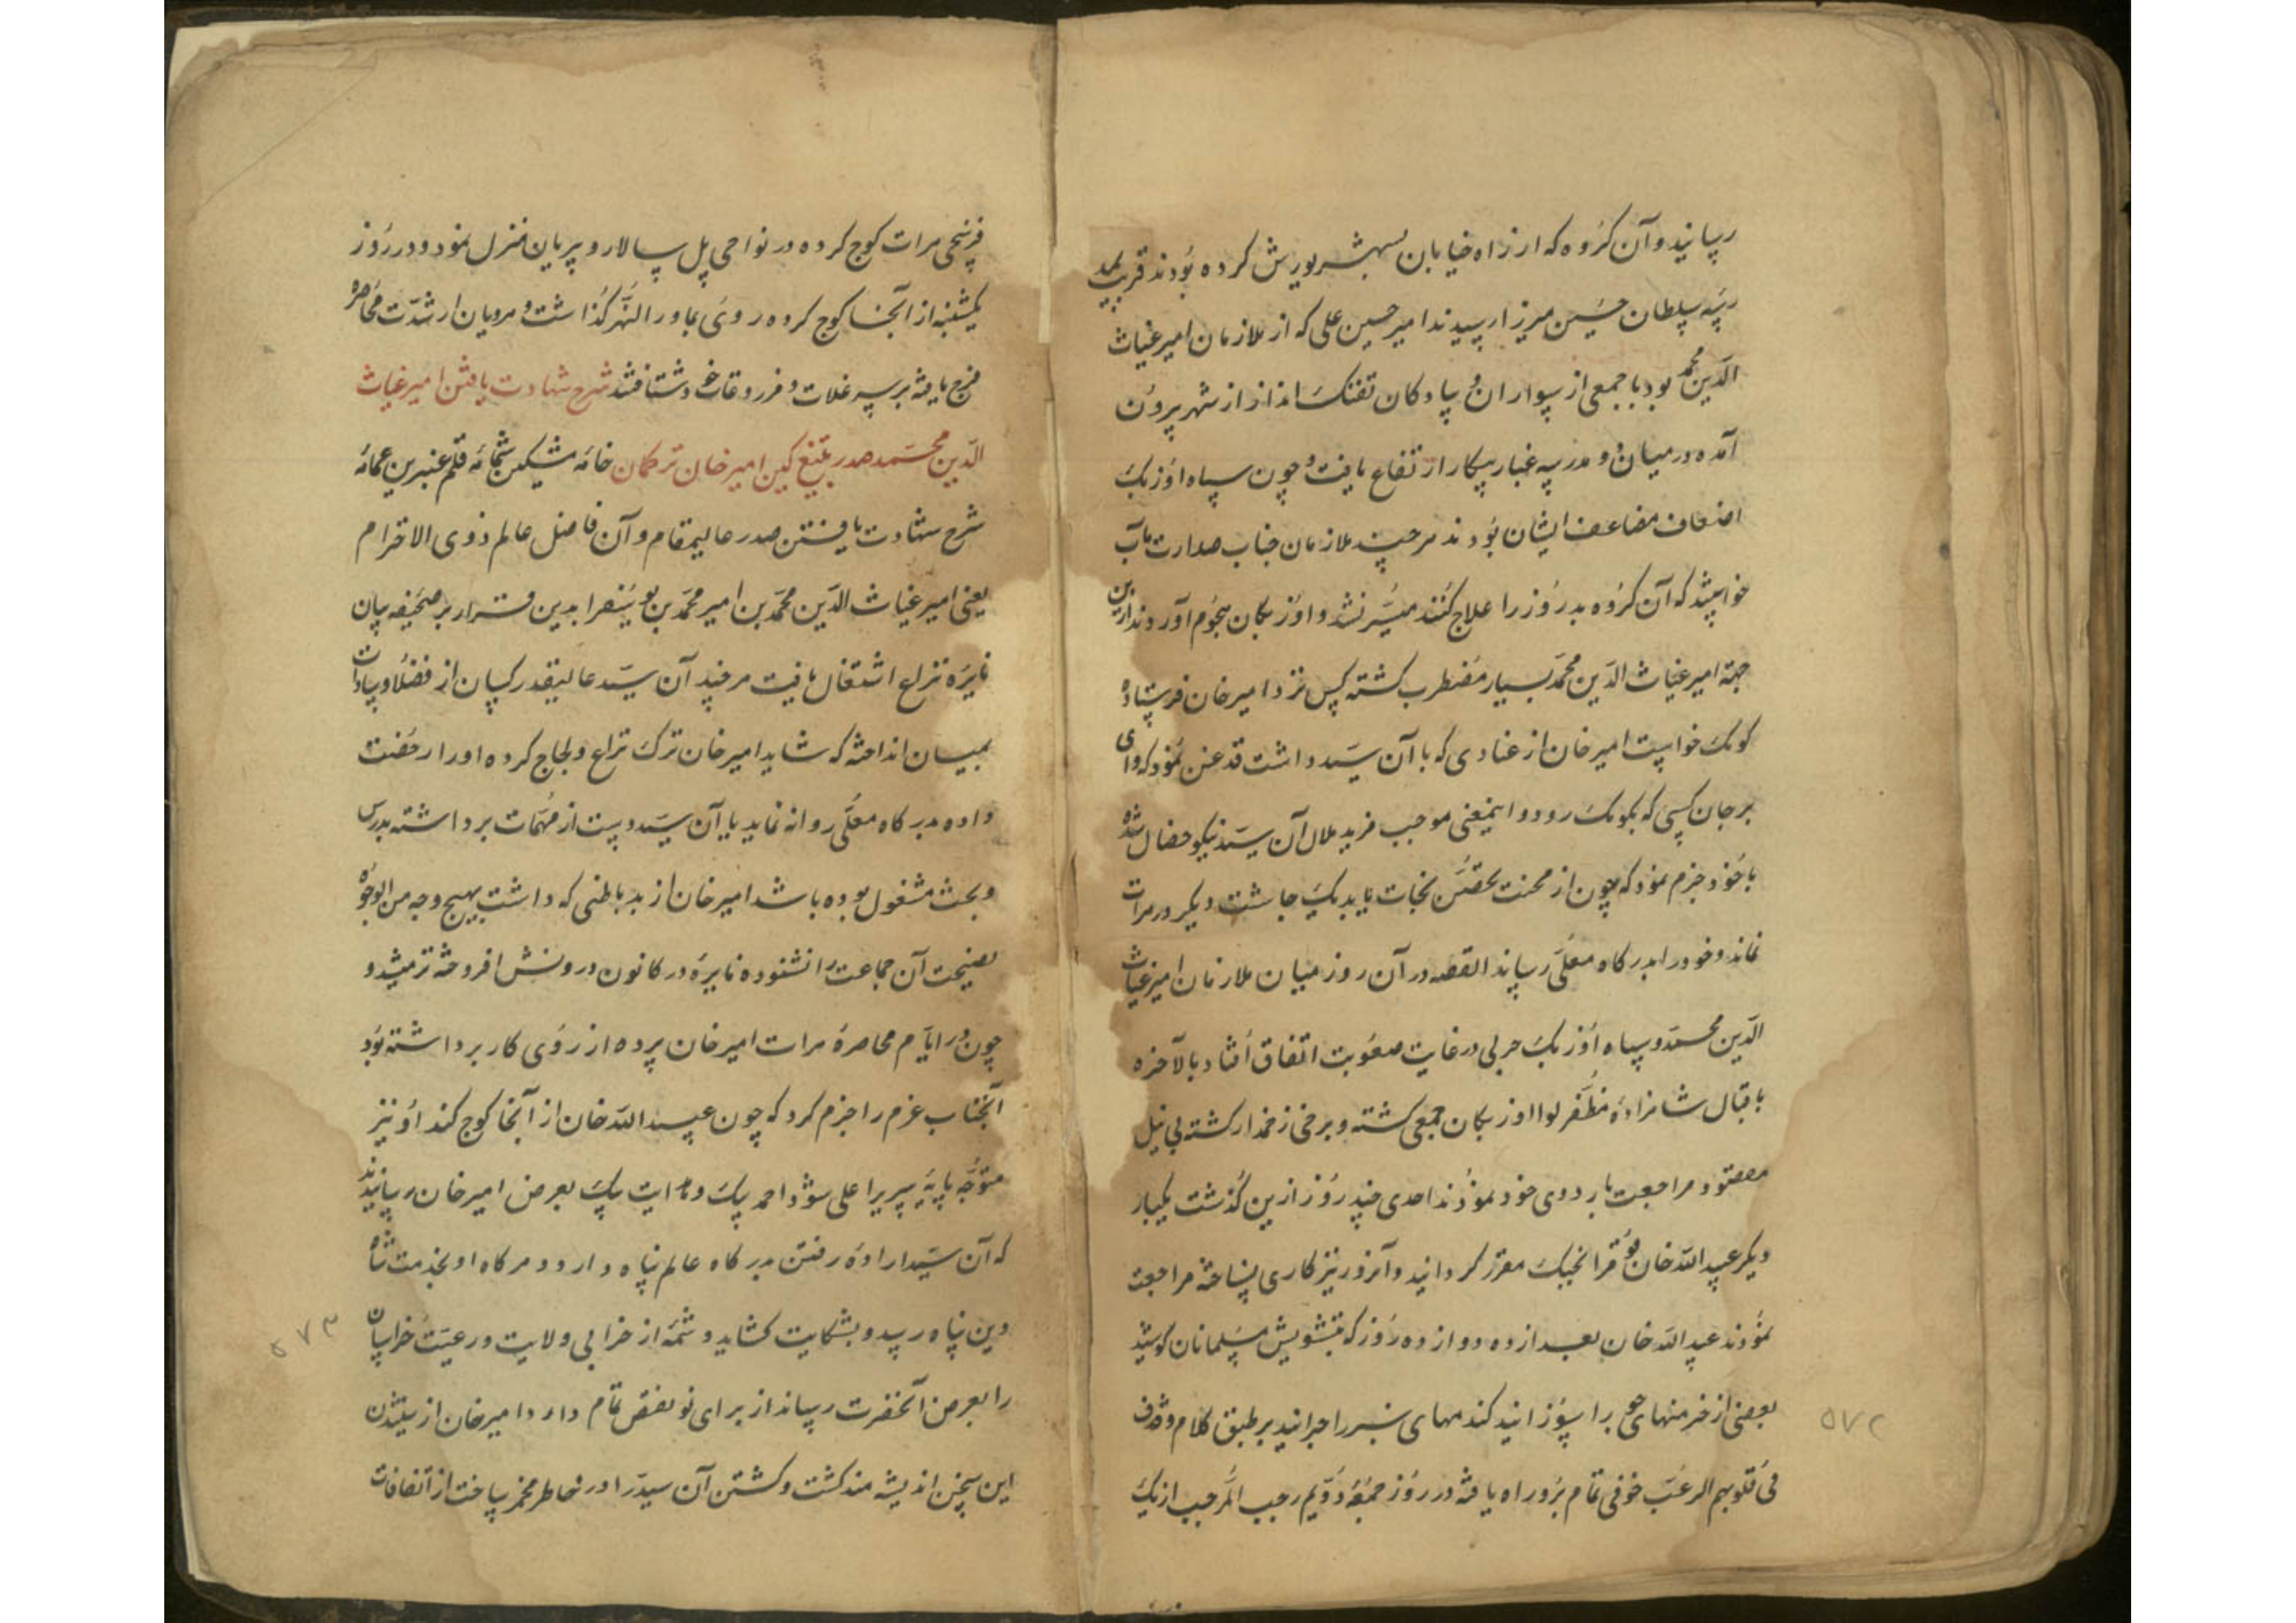 رسانید و آن گروه که از راه خیابان بشهر یورش کرده بودند قریب بمد
رسه سلطان حسین میرزا رسیدند امیر حسین علی که از ملازمان امیر غیاث
الدین محمد بود با جمعی از سواران و پیادگان تفنک انداز از شهر بیرون
آمده در میان دو مدرسه غبار پیکار ارتفاع یافت و چون سپاه اوزبک
اضعاف مضاعف ایشان بودند هرچند ملازمان جناب صدارت مآب
خواستند که آن گروه بد روز را علاج کنند میسر نشد و اوزبکان هجوم آوردند ازین
جهة امیر غیاث الدین محمد بسیار مضطرب گشته کس نزد امیر خان فرستاده
کومک خواست امیر خان از عنادی که با آن سید داشت قدغن نمود که وای
بر جان کسی که بکومک رود و اینمعنی موجب مزید ملال آن سید نیکو خصال شده
با خود جزم نمود که چون از محنت تحصن نجات یابد یک جاشت دیگر در هرات
نماند و خود را بدرگاه معلی رساند القصه در آن روز میان ملازمان امیر غیاث
الدین محمد و سپاه اوزبک حربی در غایت صعوبت اتفاق افتاد بالآخره
باقبال شاهزاده مظفر لوا اوزبکان جمعی کشته و برخی زخمدار گشته بی نیل
مقصود مراجعت باردوی خود نمودند احدی چند روز ازین گذشت یکبار
دیگر عبید الله خان قرا بخیک مقرر گردانید و آنروز نیز کاری نساخته مراجعت
نمودند عبید الله خان بعد از ده دوازده روز که بتشویش مسلمانان کوشید
بعضی از خرمنهای جو را سوزانید گندمهای سبز را چرانید بر طبق کلام وقذف
فی قلوبهم الرعب خوفی تمام بر او راه یافته در روز جمعه دویم رجب المرجب از یک
۵۷۲
فرسخی هرات کوچ کرده در نواحی پل سالار و پریان منزل نمود و در روز
یکشنبه از آنجا کوچ کرده روی بماورالنهر گذاشت و هرویان از شدت محاصره
فرج یافته بر سر غلات و مزروعات خود شتافتند شرح شهادت یافتن امیر غیاث
الدین محمد صدر بتیغ کین امیر خان ترکمان خامه مشکین شمامه قلم عنبرین عمامه
شرح شهادت یافتن صدر عالیمقام و آن فاضل عالم ذوی الاحترام
یعنی امیر غیاث الدین محمد بن امیر محمد بن یوسف را بدین قرار بر صحیفه بیان
نایره نزاع اشتغال یافت هرچند آن سید عالیقدر کسان از فضلا و سادات
بمیان انداخته که شاید امیر خان ترک نزاع و لجاج کرده او را رخصت
داده بدرگاه معلی روانه نماید یا آن سید دست از مهمات برداشته بدرس
و بحث مشغول بوده باشد امیر خان از بد باطنی که داشت بهیچ وجه من الوجوه
نصیحت آن جماعت را نشنوده نایره در کانون درونش افروخته تر میشد و
چون در ایام محاصره هرات امیر خان پرده از روی کار برداشته بود
آنجناب عزم را جزم کرد که چون عبید الله خان از آنجا کوچ کند او نیز
متوجه پایه سریر اعلی شود احمد بیک و هدایت بیک بعرض امیر خان رسانیدند
که آن سید اراده رفتن بدرگاه عالم پناه دارد و هرگاه او بخدمت شاه
دین پناه رسد و بشکایت گشاید و شمه از خرابی ولایت و رعیت خراسان
را بعرض آنحضرت رساند از برای تو نقص تمام دارد امیر خان از شنیدن
این سخن اندیشه مند گشت و کشتن آن سید را در خاطر مخمر ساخت از اتفاقات
۵۷۳